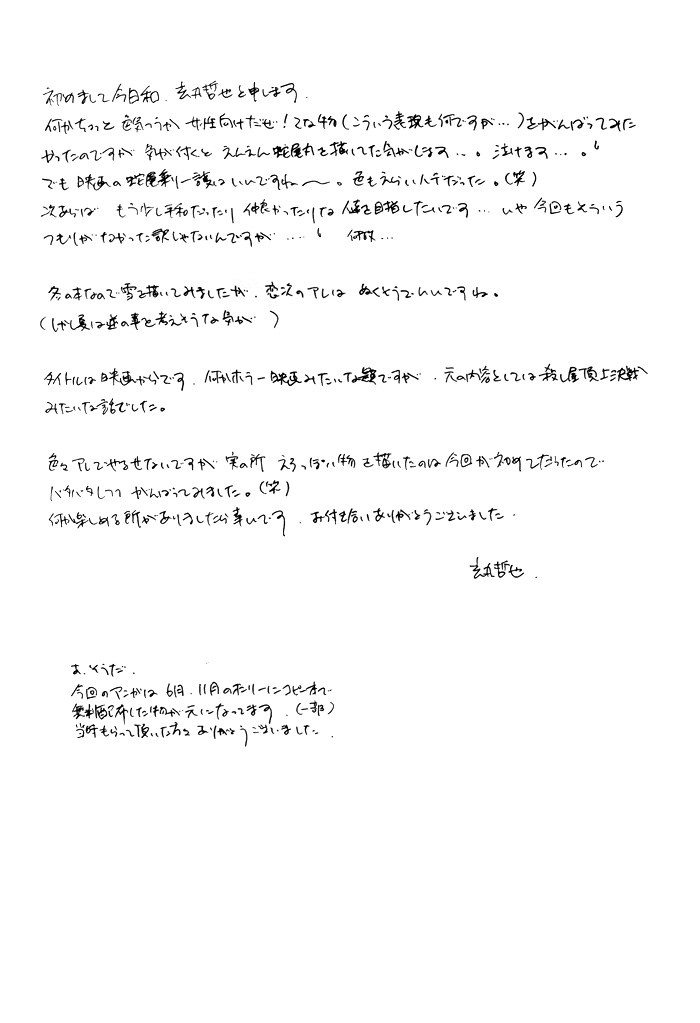 初めまして今日和、玄丸哲也と申します。
何かちょっと色気っつうか女性向けだぜ!てな物(こういう表現も何ですが…)をがんばってみた
かったのですが 気が付くと えんえん蛇尾丸を描いてた気がします…。泣けます…。
でも映画の蛇尾丸一護はいいですね〜。色もえらいハデだった。(笑)
次あらば もう少し平和だったり 仲良かったりな 位を目指したいです… いや今回もそういう
つもりがなかった訳じゃないんですが…… 何故…
冬の本なので雪を描いてみましたが、恋次のアレは ぬくそうでいいですね。
(しかし夏は逆の事を考えそうな気が)
タイトルは映画からです、何かホラー映画みたいな題ですが、元の内容としては殺し屋頂上決戦
みたいな話でした。
色々アレでやるせないですが 実の所 えろっぽい物を描いたのは今回が初めてだったので
バタバタしつつ がんばってみました。(笑)
何か楽しめる所がありましたら幸いです、お付き合いありがとうございました。
玄丸哲也.
あ、そうだ.
今回のマンガは 6月、11月のオンリーにコピー本で
無料配布した物が元になってます。(一部)
当時もらって頂いた方々ありがとうございました.